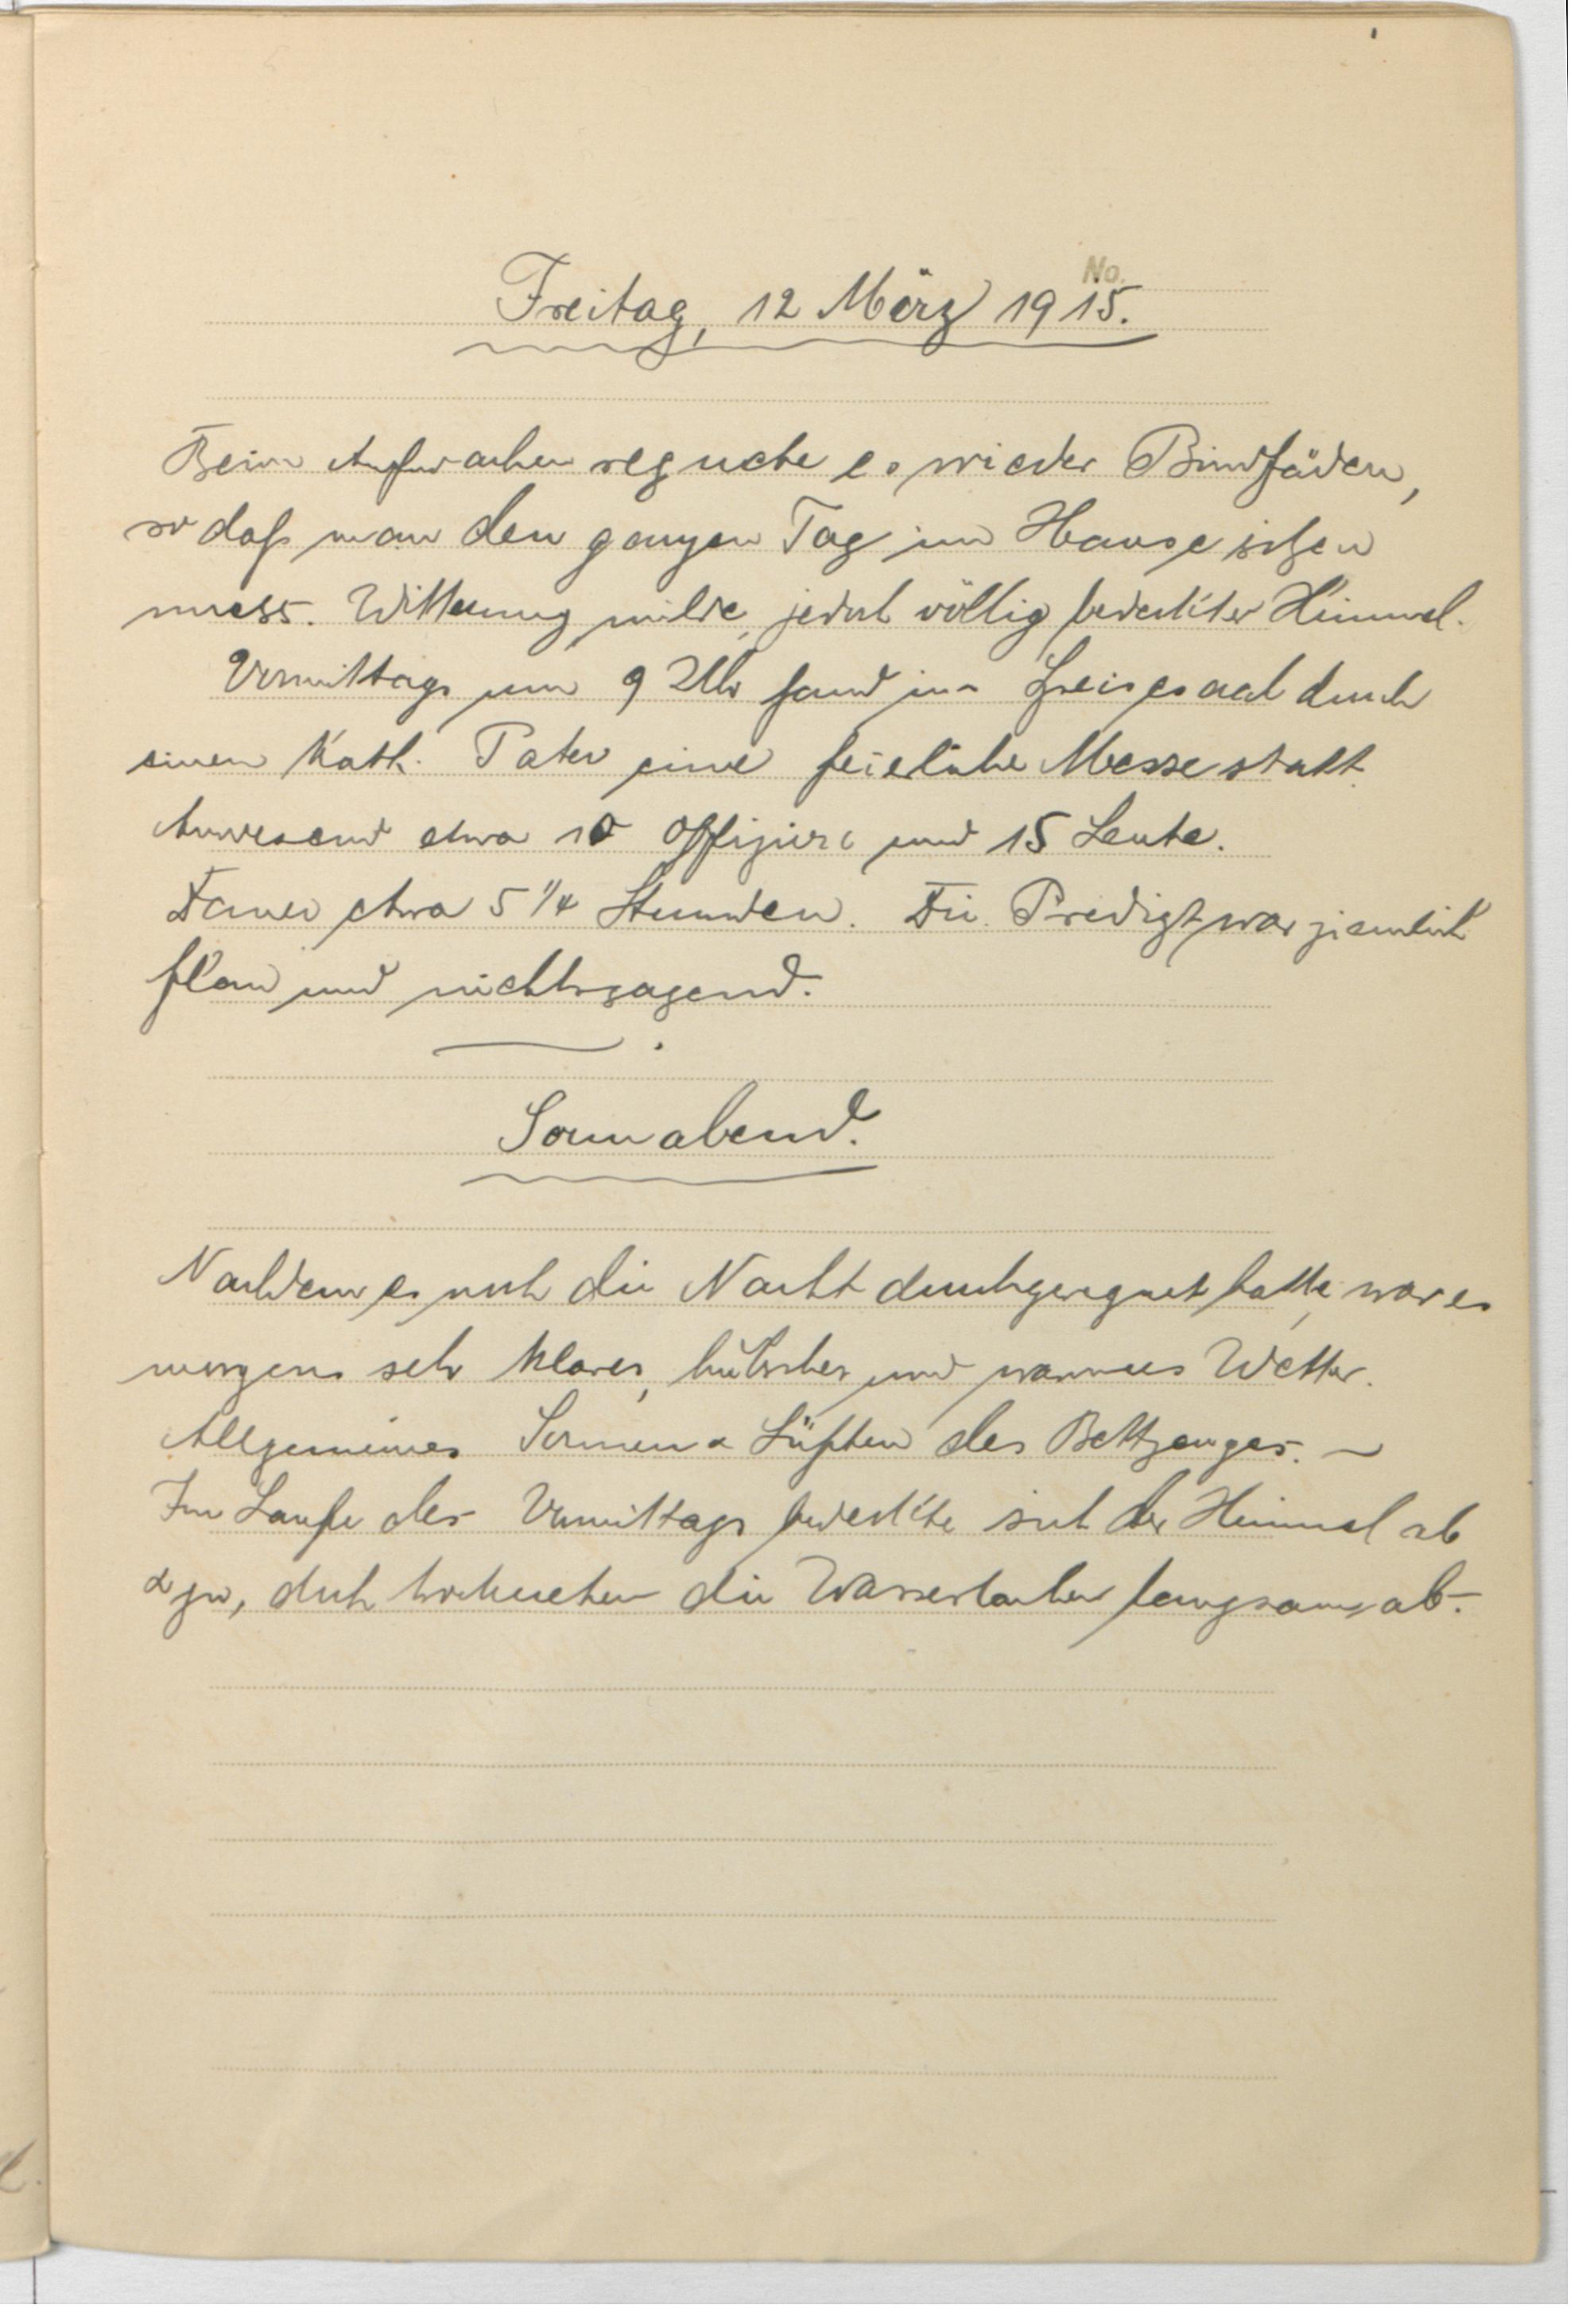 No.
Freitag, 12 März 1915.
Beim Aufwachen regnete es wieder Bindfäden,
so daß man den ganzen Tag im Hause sitzen
muss. Witterung milde, jedoch völlig bedeckter Himmel.
Vormittags um 9 Uhr fand im Speisesaal durch
einen Kath. Pater eine feierliche Messe statt.
Anwesend etwa 10 Offiziere und 15 Leute.
Dauer etwa 5/4 Stunden. Die Predigt war ziemlich
flau und nichtssagend.
Sonnabend.
Nachdem es noch die Nacht durchgeregnet hatte, war es
morgens sehr klares, hübsches und warmes Wetter.
Allgemeines Sonnen & Lüften des Bettzeuges. –
Im Laufe des Vormittags bedeckte sich der Himmel ab
& zu, doch trockneten die Wasserlachen langsam ab.